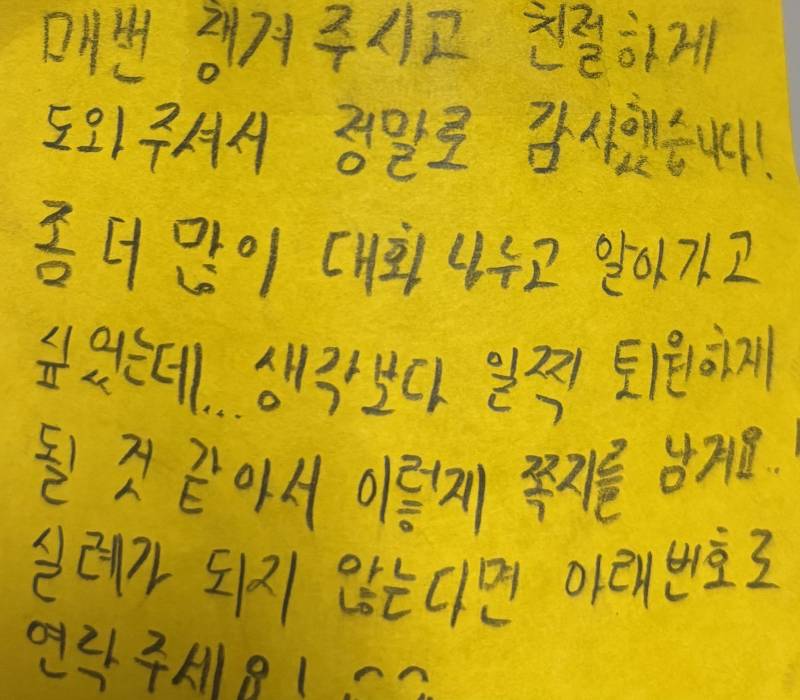 매번 챙겨 주시고 친절하게
도와주셔서 정말로 감사했습니다!
좀 더 많이 대화 나누고 알아가고
싶었는데... 생각보다 일찍 퇴원하게
될 것 같아서 이렇게 쪽지를 남겨요..
실례가 되지 않는다면 아래번호로
연락주세요! ^^